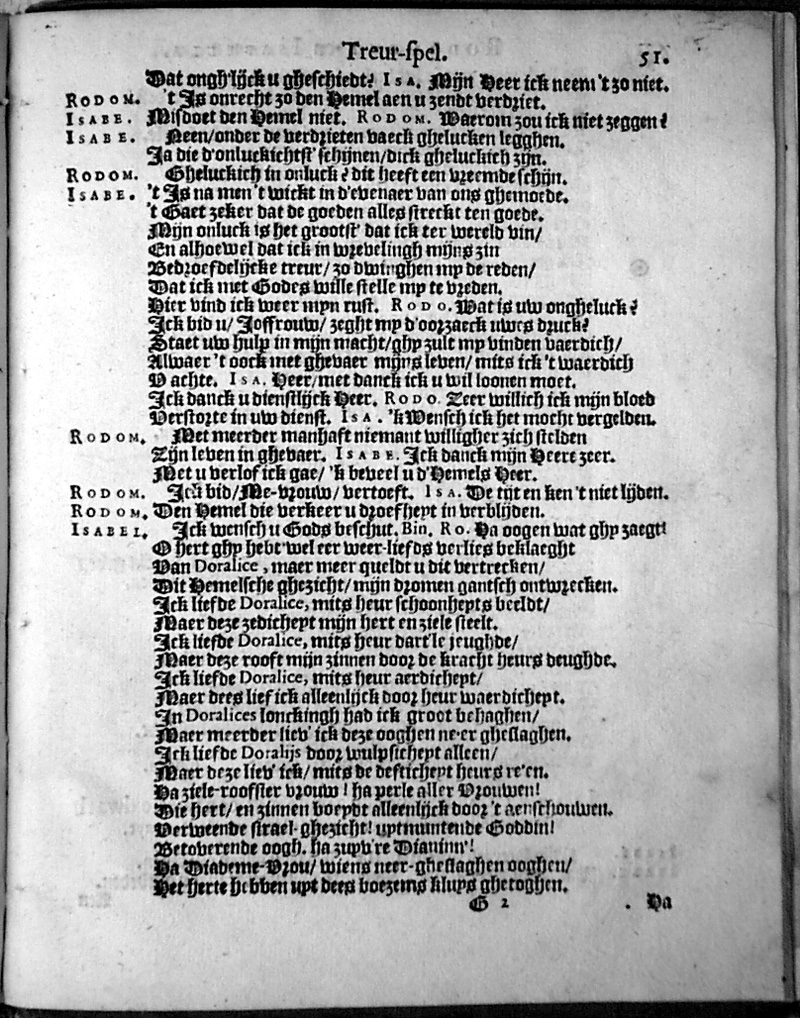 Treur-spel. 51.
Dat ongh'lijck u gheschiedt? Isa. Mijn Heer ick neem 't zo niet.
Rodom. 't Is onrecht zo den Hemel aen u zendt verdriet.
Isabe. Misdoet den Hemel niet. Rodom. Waerom zou ick niet zeggen?
Isabe. Neen/onder de verdrieten vaeck ghelucken legghen.
Ja die d'onluckichtst' schijnen/dick gheluckich zijn.
Rodom. Gheluckich in onluck? dit heeft een vreemde schijn.
Isabe. 't Is na men 't wickt in d'evenaer van ons ghemoede.
't Gaet zeker dat de goeden alles streckt ten goede.
Mijn onluck is het grootst' dat ick ter wereld vin/
En alhoewel dat ick in wrevelingh mijns zin
Bedroefdelijcke treur/ zo dwinghen my de reden/
Dat ick met Godes wille stelle my te vreden.
Hier vind ick weer myn rust. Rodo. Wat is uw ongheluck?
Ick bid u/ Joffrouw/ zeght my d'oorzaeck uwes druck?
Staet uw hulp in mijn macht/ghy zult my vinden vaerdich/
Alwaer 't oock met ghevaer mijns leven/ mits ick 't waerdich
V achte. Isa. Heer/met danck ick u wil loonen moet.
Ick danck u dienstlijck Heer. Rodo. Zeer willich ick mijn bloed
Verstorte in uw dienst. Isa. 'k Wensch ick het mocht vergelden.
Rodom. Met meerder manhaft niemant willigher zich stelden
Zijn leven in ghevaer. Isabe. Ick danck mijn Heere zeer.
Met u verlof ick gae/ 'k beveel u d'Hemels Heer.
Rodom. Ick bid/Me-vrouw/vertoeft. Isa. De tijt en ken 't niet lijden.
Rodom. Den Hemel die verkeer u droefheyt in verblijden.
Isabel. Ick wensch u Gods beschut. Bin. Ro. Ha oogen wat ghy zaegt!
O hert ghy hebt wel eer weer-liefds verlies beklaeght
Van Doralice, maer meer queldt u dit vertrecken/
Dit Hemelsche ghezicht/ mijn dromen gantsch ontwrecken.
Ick liefde Doralice, mits heur schoonheyts beeldt/
Maer deze zedicheyt mijn hert en ziele steelt.
Ick liefde Doralice, mits heur dart'le jeughde/
Maer deze rooft mijn zinnen door de kracht heurs deughde.
Ick liefde Doralice, mits heur aerdicheyt/
Maer dees lief ick alleenlijck door heur waerdicheyt.
In Doralices lonckingh had ick groot behaghen/
Maer meerder liev' ick deze ooghen ne'er gheslaghen.
Ick liefde Doralijs door wulpsicheyt alleen/
Maer deze liev' ick/ mits de defticheyt heurs re'en.
Ha ziele-roofster vrouw! ha perle aller Vrouwen!
Die hert/ en zinnen boeydt alleenlijck door 't aenschouwen.
Verweende strael-ghezicht! uytmuntende Goddin!
Betoverende oogh. ha zuyv're Dianinn'!
Ha Diademe-Vrou/ wiens neer-gheslaghen ooghen/
Het herte hebben uyt dees boezems kluys ghetoghen.
G 2 Ha